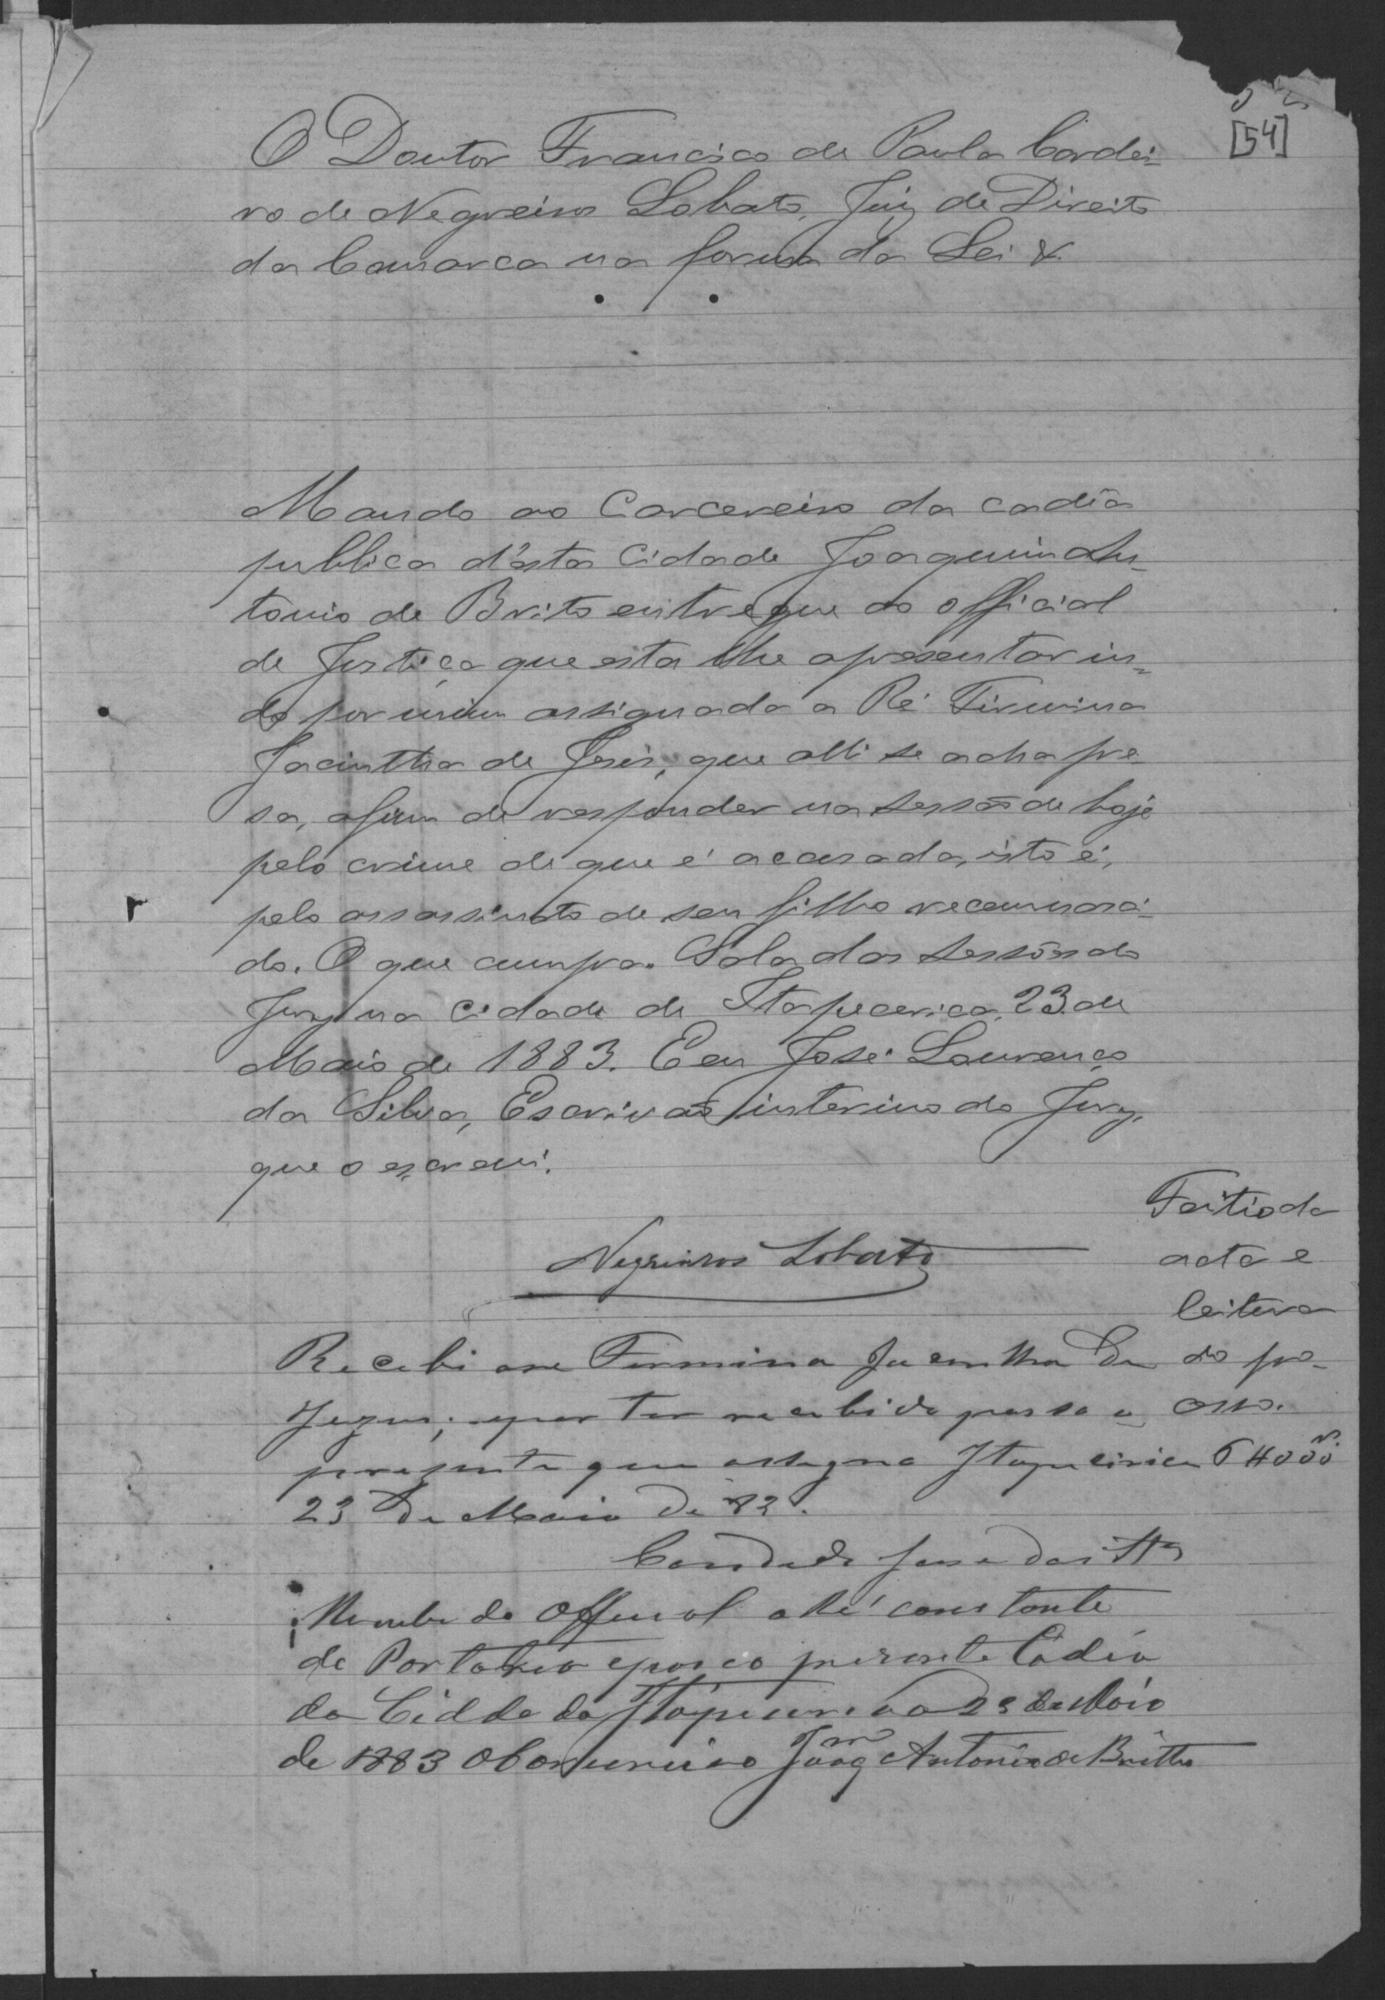 [54]
O Doutor Francisco de Paula Cordei-
ro de Negreiros Lobato, Juiz de Direito
da Comarca na forma da Lei &.
Mando ao Carcereiro da cadêa
publica d'esta Cidade Joaquim An-
tonio de Brito entregue ao official
de Justiça que esta lhe apresentar in-
do por mim assignada a Ré Firmina
Jacintha de Jesus, que alli se acha pre-
sa, afim de responder na sessão de hoje
pelo crime de que é accusada, isto é,
pelo assassinato de seu filho recemnasci-
do. O que cumpra. Sala das Sessões do
Jury na Cidade de Itapecerica, 23 de
Maio de 1883. E eu José Lourenço
da Silva, Escrivão interino do Jury,
que o escrevi.
Negreiros Lobato
Feitio da
acta e
leitura
do pro-
cesso.
Recebi a re Firmina Jacintha de
Jezus, e por ter recebido passo o
prezente que assigno Itapecirica
23 de Maio de 83.
do Official a Ré constante
da Portaria
da Cidde de Itapecirica 23 de Maio
de 1883 O Carcereiro Joaqm Antonio de Britto